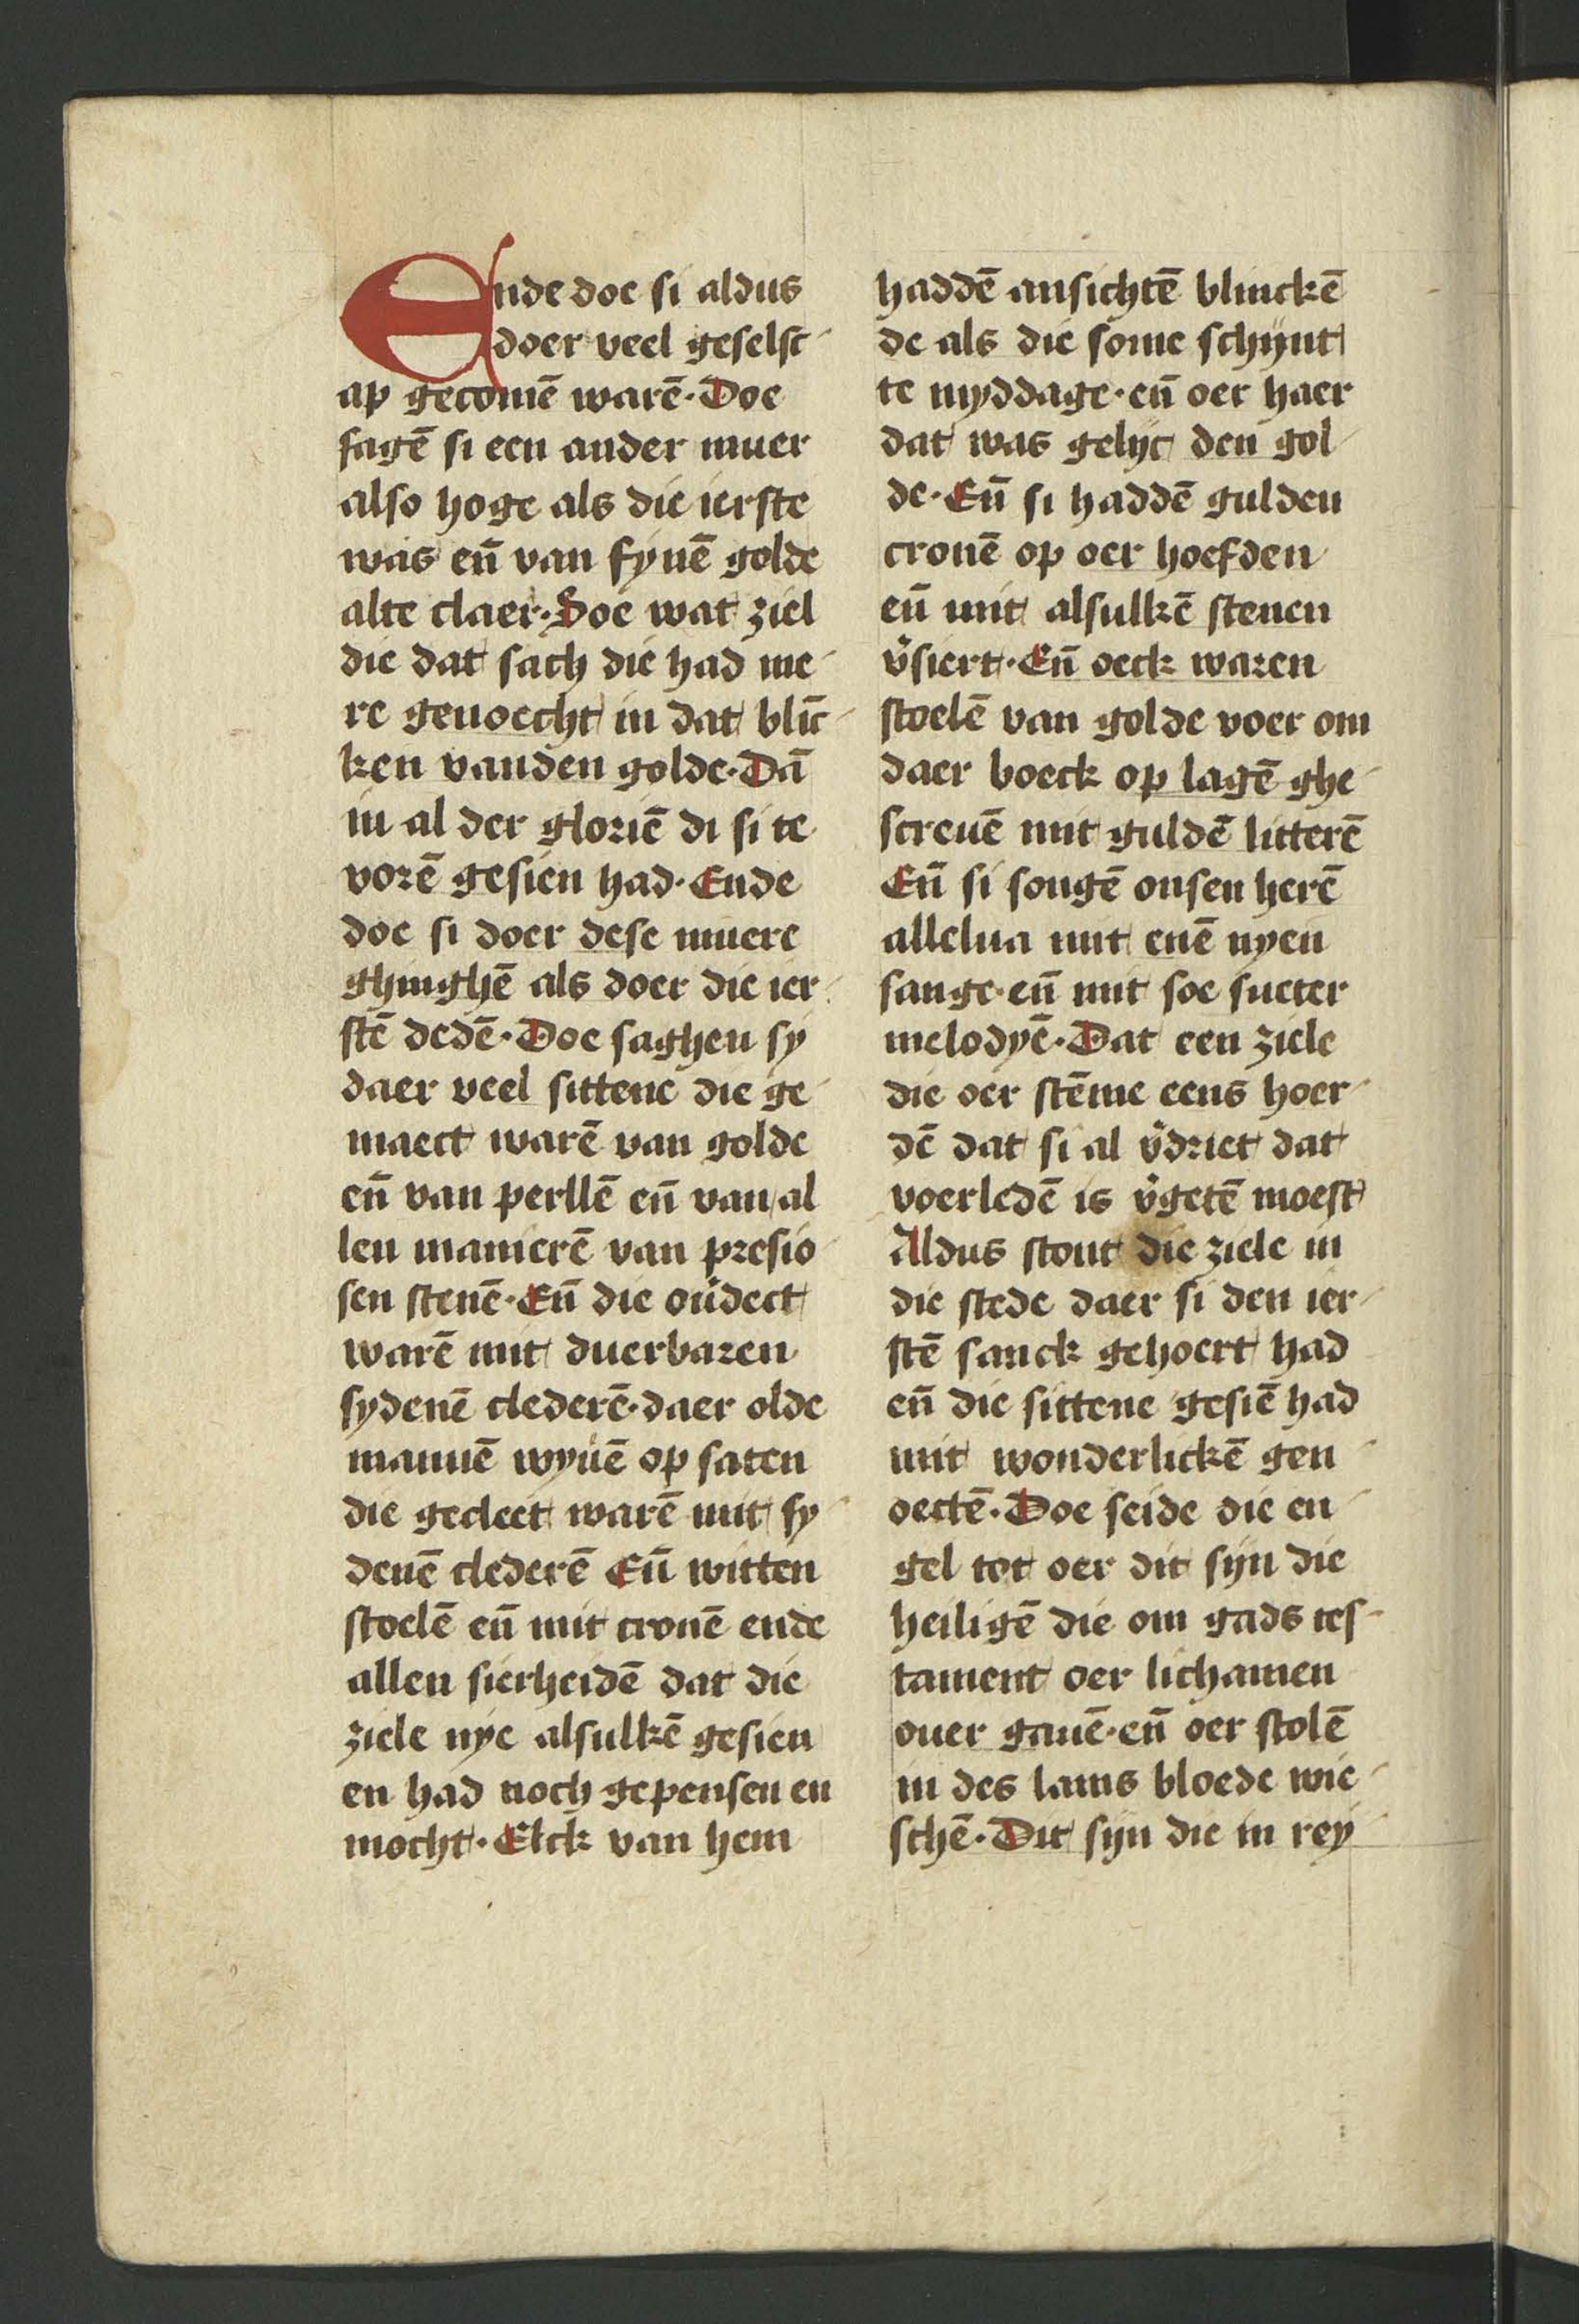 Ende doe si aldus
doer veel geselsc
ap gecomē warē. Doe
sagē si een ander muer
also hoge als die ierste
was eñ van fynē golde
alte claer. Doe wat ziel
die dat sach die had me
re genoecht in dat blīc
ken vanden golde. Dā
in al der gloriē di si te
vorē gesien had. Ende
doe si doer dese muere
ghinghē als doer die ier
stē dedē. Doe saghen sy
daer veel sittene die ge
maect warē van golde
eñ van perllē eñ van al
len manierē van presio
sen stenē. Eñ die ou᷑dect
warē mit duerbaren
sydenē clederē. daer olde
mannē wyuē op saten
die gecleet warē mit sy
denē clederē Eñ witten
stoelē eñ mit cronē ende
allen sierheidē dat die
ziele nye alsulkē gesien
en had noch gepensen en
mocht. Elck van hem
haddē ansichtē blinckē
de als die sonne schijnt
te myddage. eñ oer haer
dat was gelijc den gol
de. Eñ si haddē gulden
cronē op oer hoefden
eñ mit alsulkē stenen
v᷑siert. Eñ oeck waren
stoelē van golde voer om
daer boeck op lagē ghe
screuē mit guldē litterē
Eñ si songē onsen herē
allelua mit enē nyen
sange. eñ mit soe sueter
melodyē. Dat een ziele
die oer stēme eens hoer
dē dat si al v᷑driet dat
voerledē is v᷑getē moest
Aldus stont die ziele in
die stede daer si den ier
stē sanck gehoert had
eñ die sittene gesiē had
mit wonderlickē gen
oectē. Doe seide die en
gel tot oer dit sijn die
heiligē die om gads tes
tament oer lichamen
ouer gauē. eñ oer stolē
in des lams bloede wie
schē. Dit sijn die in rey